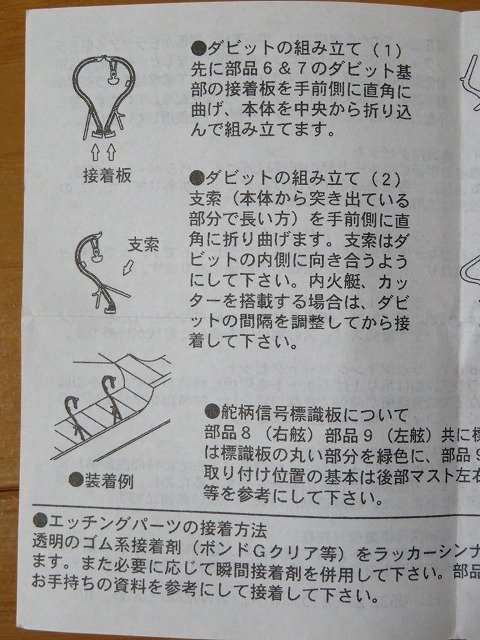 ●ダビットの組み立て（1）
先に部品6＆7のダビット基
部の接着板を手前側に直角に
曲げ、本体を中央から折り込
んで組み立てます。
接着板
●ダビットの組み立て（2）
支索（本体から突き出ている
部分で長い方）を手前側に直
角に折り曲げます。支索はダ
ビットの内側に向き合うよう
にして下さい。内火艇、カッ
ターを搭載する場合は、ダビ
ットの間隔を調整してから接
着して下さい。
支索
●装着例
●舵柄信号標識板について
部品8（右舷）部品9（左舷）共に標
は標識板の丸い部分を緑色に、部品9
取り付け位置の基本は後部マスト左右
等を参考にして下さい。
●エッチングパーツの接着方法
透明のゴム系接着剤（ボンドGクリア等）をラッカーシンナ
ます。また必要に応じて瞬間接着剤を併用して下さい。部品
お手持ちの資料を参考にして接着して下さい。